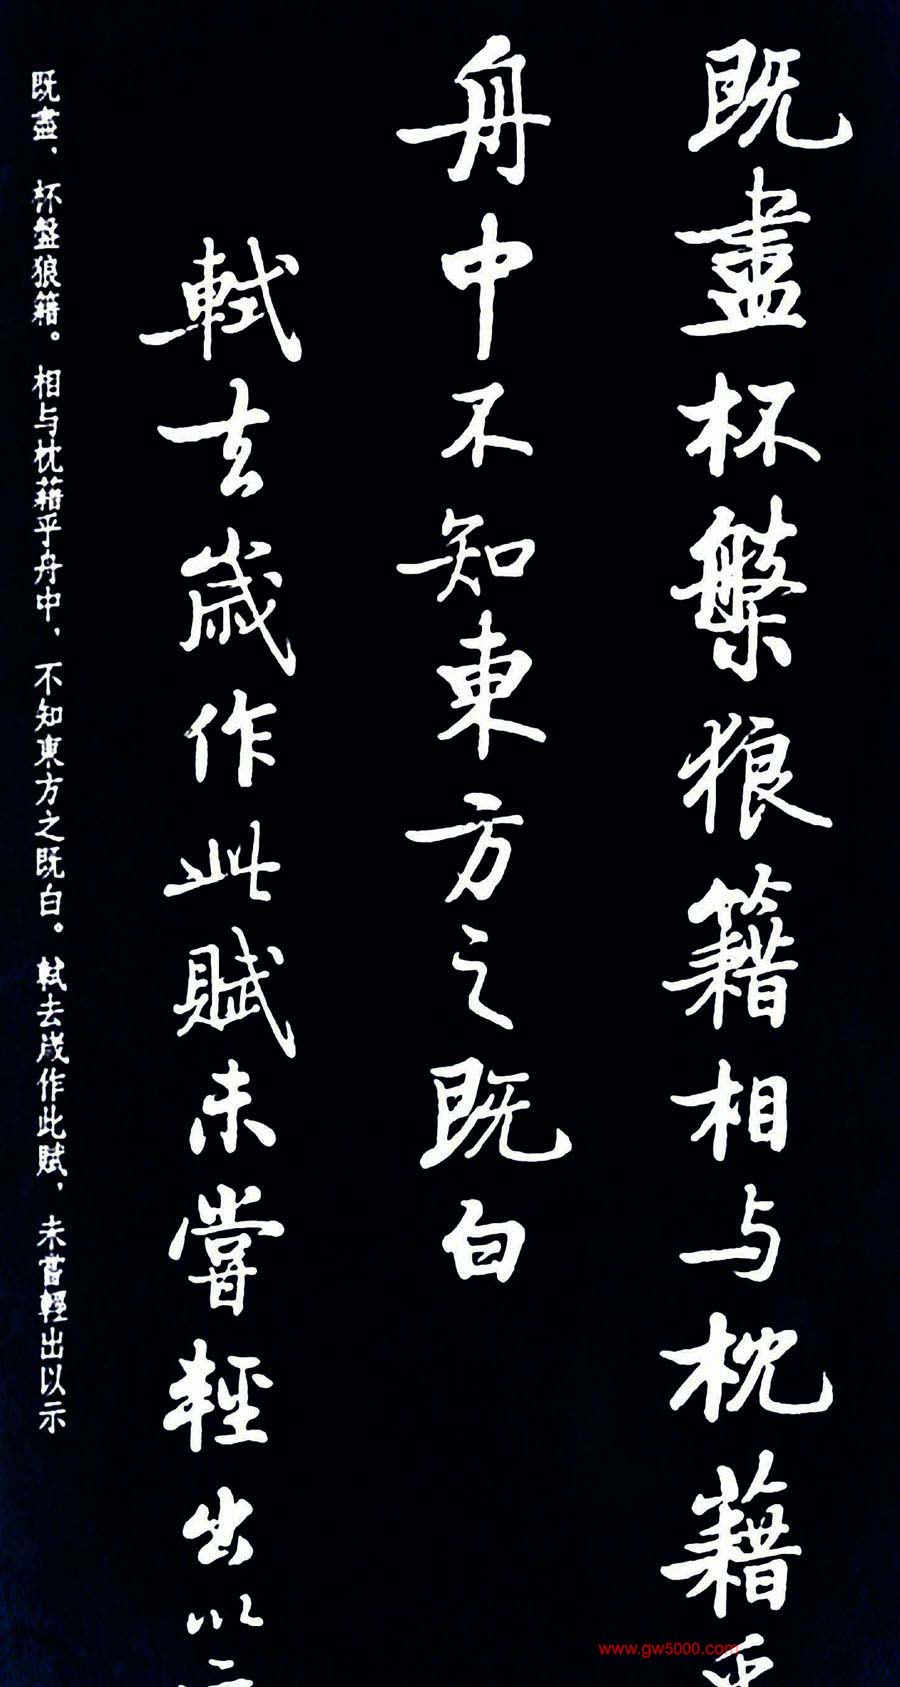 既盡杯槃狼籍相与枕藉乎
舟中不知東方之既白
軾去歲作此賦未嘗輕出以示
既盡、杯盤狼籍。相与枕藉乎舟中，不知東方之既白。軾去歲作此賦，未嘗輕出以示
www.gw5000.com